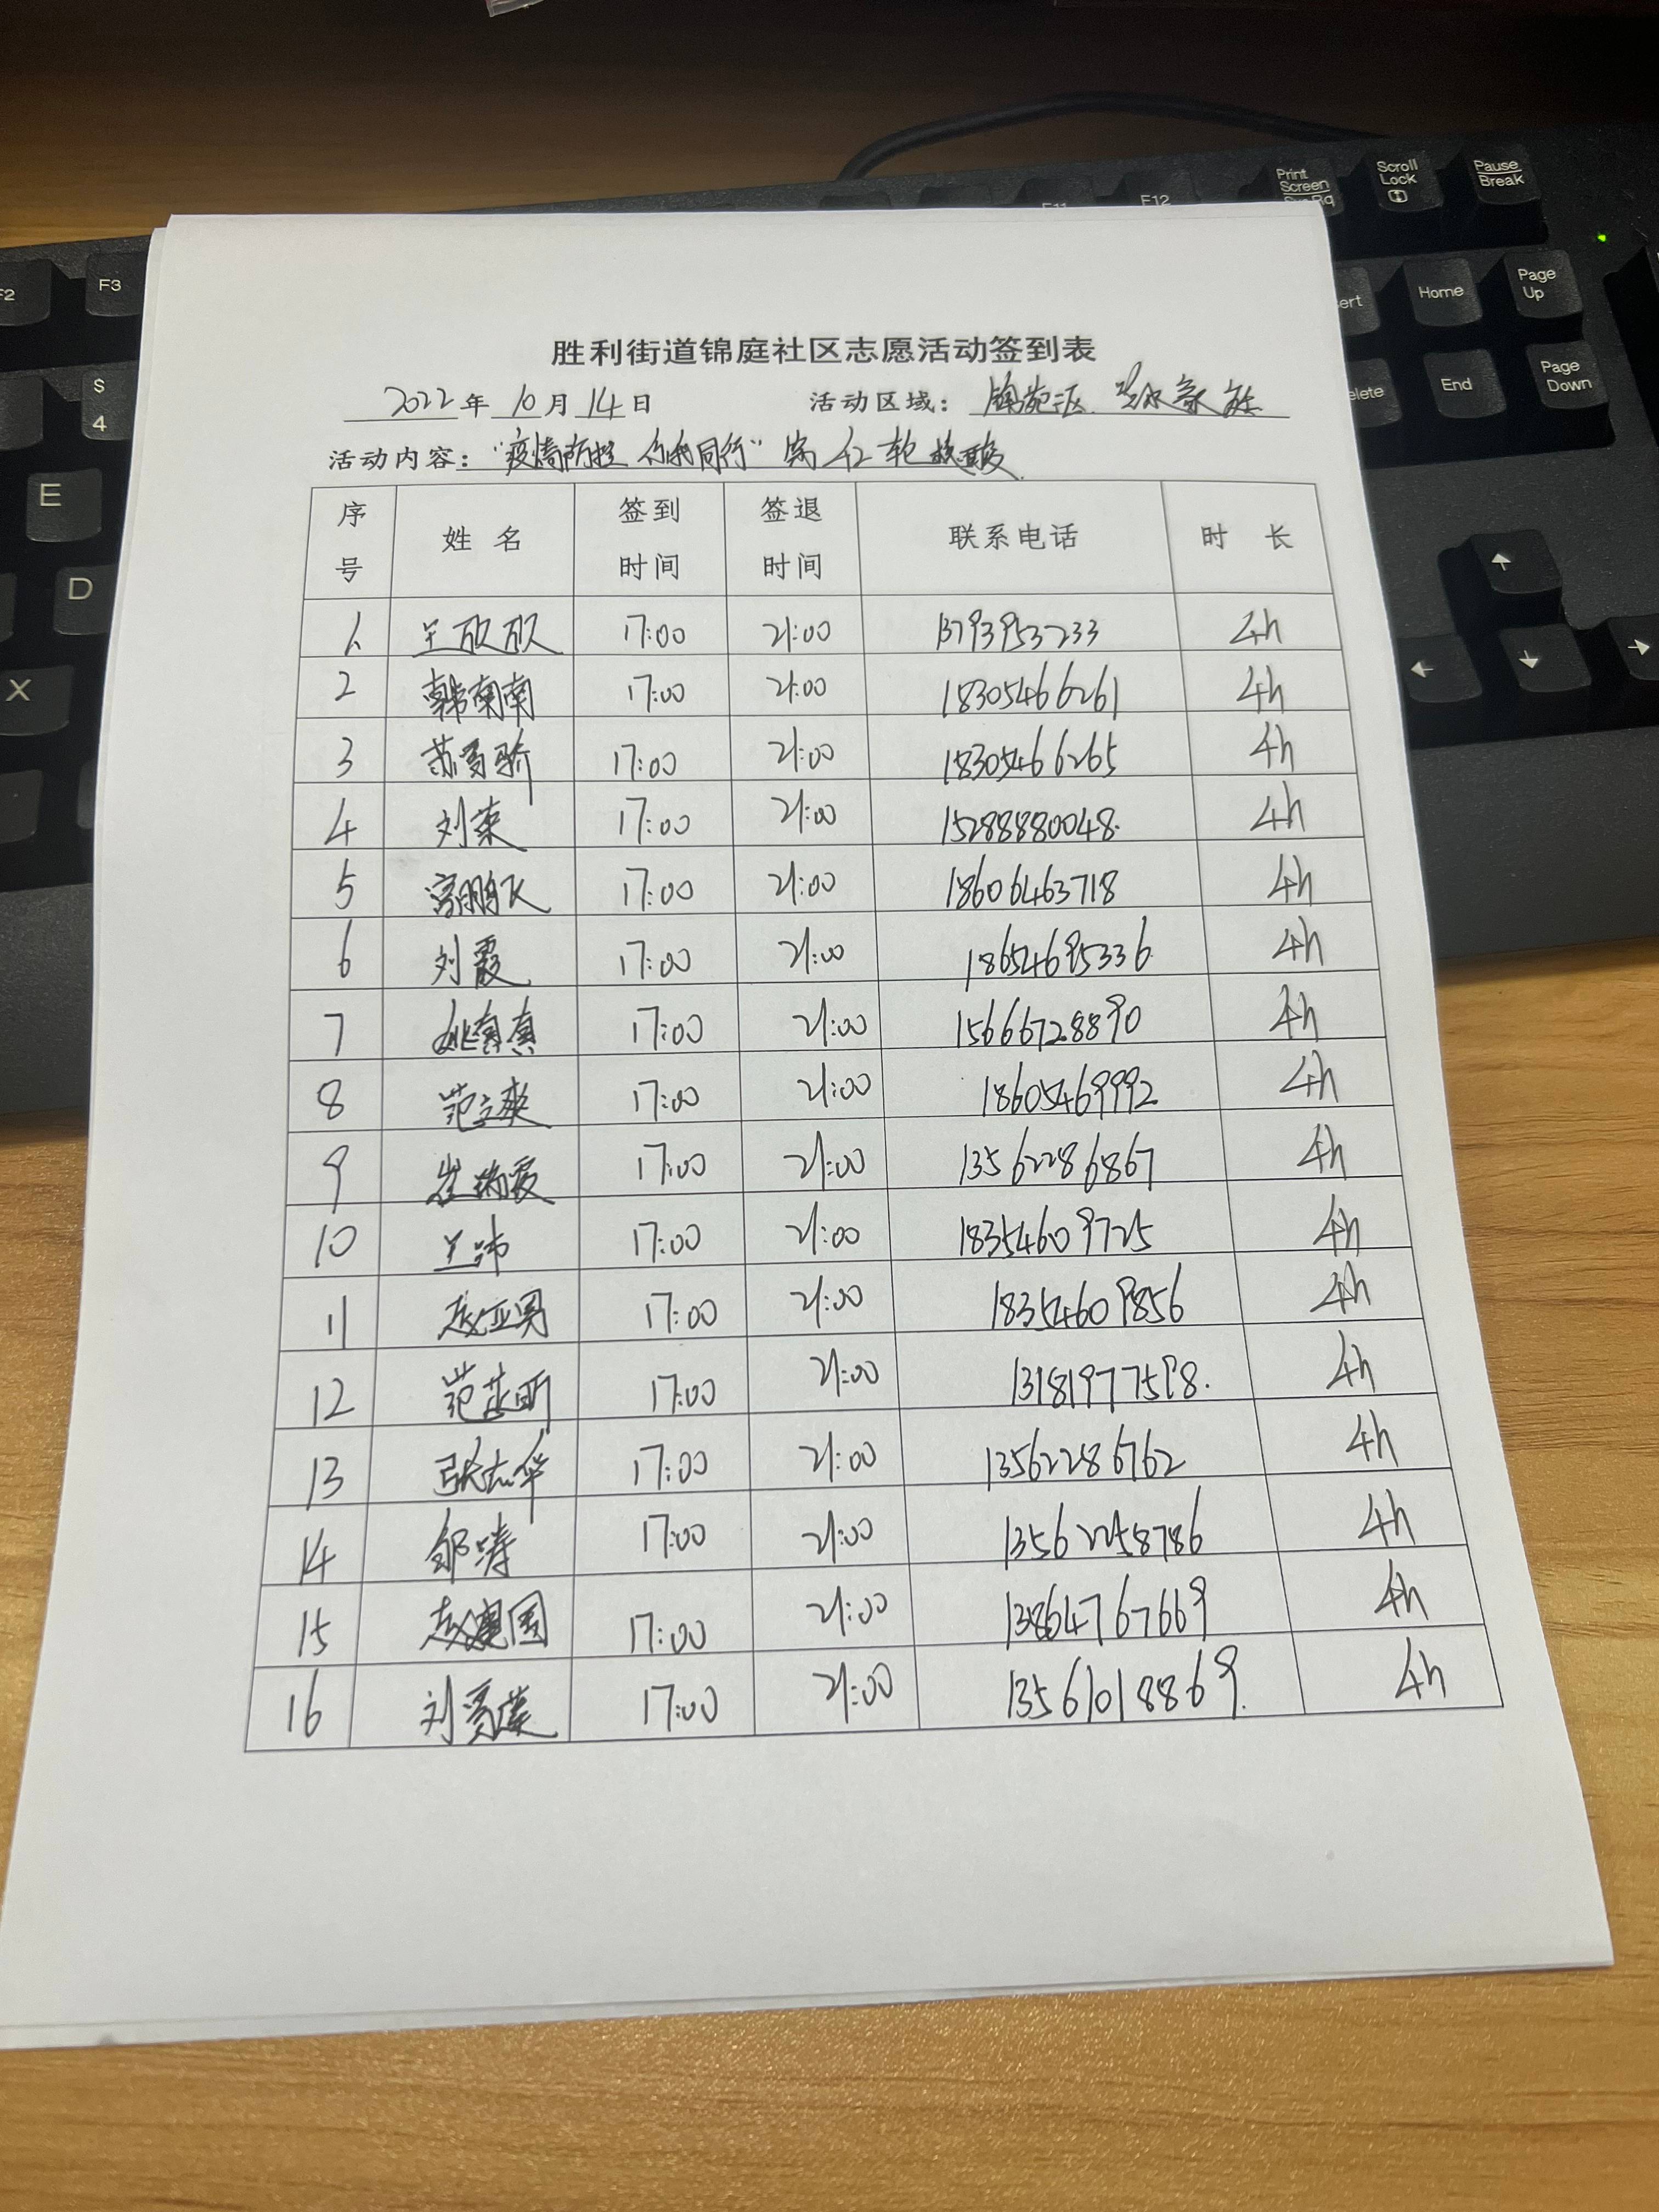 Print Screen SysRq
Scroll Lock
Pause Break
F11
F12
F2
F3
Home
Page Up
$ 4
End
Page Down
E
D
X
胜利街道锦庭社区志愿活动签到表
2022年 10月 14日 活动区域: 锦苑二区
活动内容: "疫情防控 你我同行" 第 轮 核酸
序号 姓名 签到时间 签退时间 联系电话 时长
1. 王欣欣 17:00 21:00 13793953233 4h
2 韩南南 17:00 21:00 18305466261 4h
3 17:00 21:00 18305466265 4h
4 刘荣 17:00 21:00 15288880048. 4h
5 高鹏飞 17:00 21:00 18606463718 4h
6 刘霞 17:00 21:00 18654695336 4h
7 17:00 21:00 15666728890 4h
8 范立爽 17:00 21:00 18605469992 4h
9 崔瑞霞 17:00 21:00 13562286867 4h
10 17:00 21:00 18354609725 4h
11 赵亚男 17:00 21:00 18354609856 4h
12 17:00 21:00 13181977598. 4h
13 张志华 17:00 21:00 13562286762 4h
14 邹涛 17:00 21:00 13562258786 4h
15 赵建国 17:00 21:00 13864767669 4h
16 17:00 21:00 13561018869. 4h